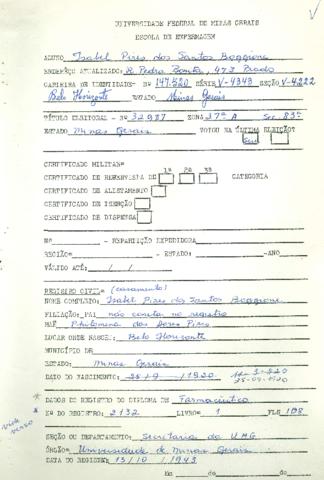 UNIVERSIDADE FEDERAL DE MINAS GERAIS
ESCOLA DE ENFERMAGEM
ALUNO Isabel Pires dos Santos Baggione
ENDEREÇO ATUALIZADO: R. Pedra Bonita, 473 Prado
CARTEIRA DE IDENTIDADE- Nº 147.520 SÉRIE V-4343 SEÇÃO V-4222
Belo Horizonte ESTADO Minas Gerais
TÍTULO ELEITORAL - Nº 32937 ZONA 37ª A Sec. 83ª
ESTADO Minas Gerais VOTOU NA ÚLTIMA ELEIÇÃO?
Sim
CERTIFICADO MILITAR=
CERTIFICADO DE RESERVISTA DE 1ª 2ª 3ª CATEGORIA
CERTIFICADO DE ALISTAMENTO
CERTIFICADO DE ISENÇÃO
CERTIFICADO DE DISPENSA
Nº - REPARTIÇÃO EXPEDIDORA
REGIÃO= - ESTADO: -ANO
VÁLIDO ATÉ: / /
REGISTRO CIVIL= (casamento)
NOME COMPLETO: Isabel Pires dos Santos Baggione
FILIAÇÃO: PAI não consta no registro
MÃE Philomena das Dores Pires
LUGAR ONDE NASCEU: Belo Horizonte
MUNICÍPIO DE
ESTADO: Minas Gerais
DATO DO NASCIMENTO: /1920
DADOS DE REGISTRO DO DIPLOMA DE Farmacêutico
Nº DO REGISTRO: 2132 LIVRO= 1 FLS 108
vide verso
SEÇÃO OU DEPARTAMENTO: Secretaria da UMG
ÓRGÃO= Universidade de Minas Gerais
DATA DO REGISTRO 13/10/1943
Em de de